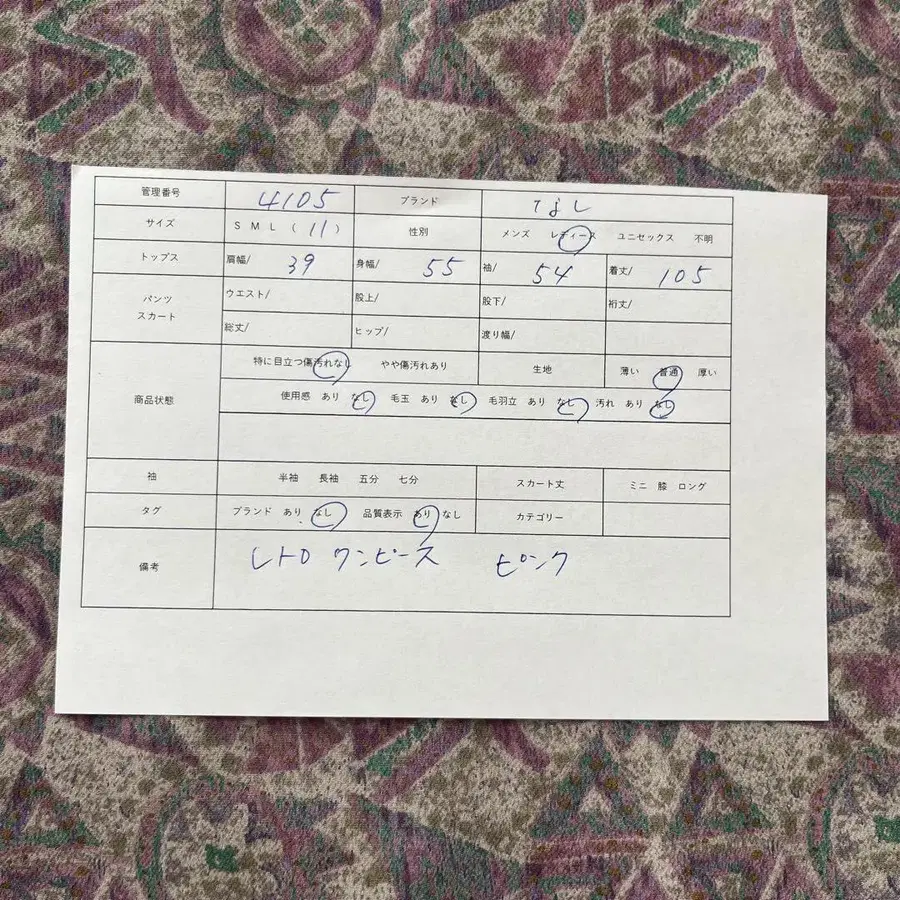 管理番号 4105 ブランド なし
サイズ S M L ( 11 ) 性別 メンズ レディース ユニセックス 不明
トップス 肩幅/ 39 身幅/ 55 袖/ 54 着丈/ 105
パンツ スカート ウエスト/ 股上/ 股下/ 裄丈/
総丈/ ヒップ/ 渡り幅/
商品状態 特に目立つ傷汚れなし やや傷汚れあり 生地 薄い 普通 厚い
使用感 あり なし 毛玉 あり なし 毛羽立 あり なし 汚れ あり なし
袖 半袖 長袖 五分 七分 スカート丈 ミニ 膝 ロング
タグ ブランド あり なし 品質表示 あり なし カテゴリー
備考 レトロ ワンピース ピンク